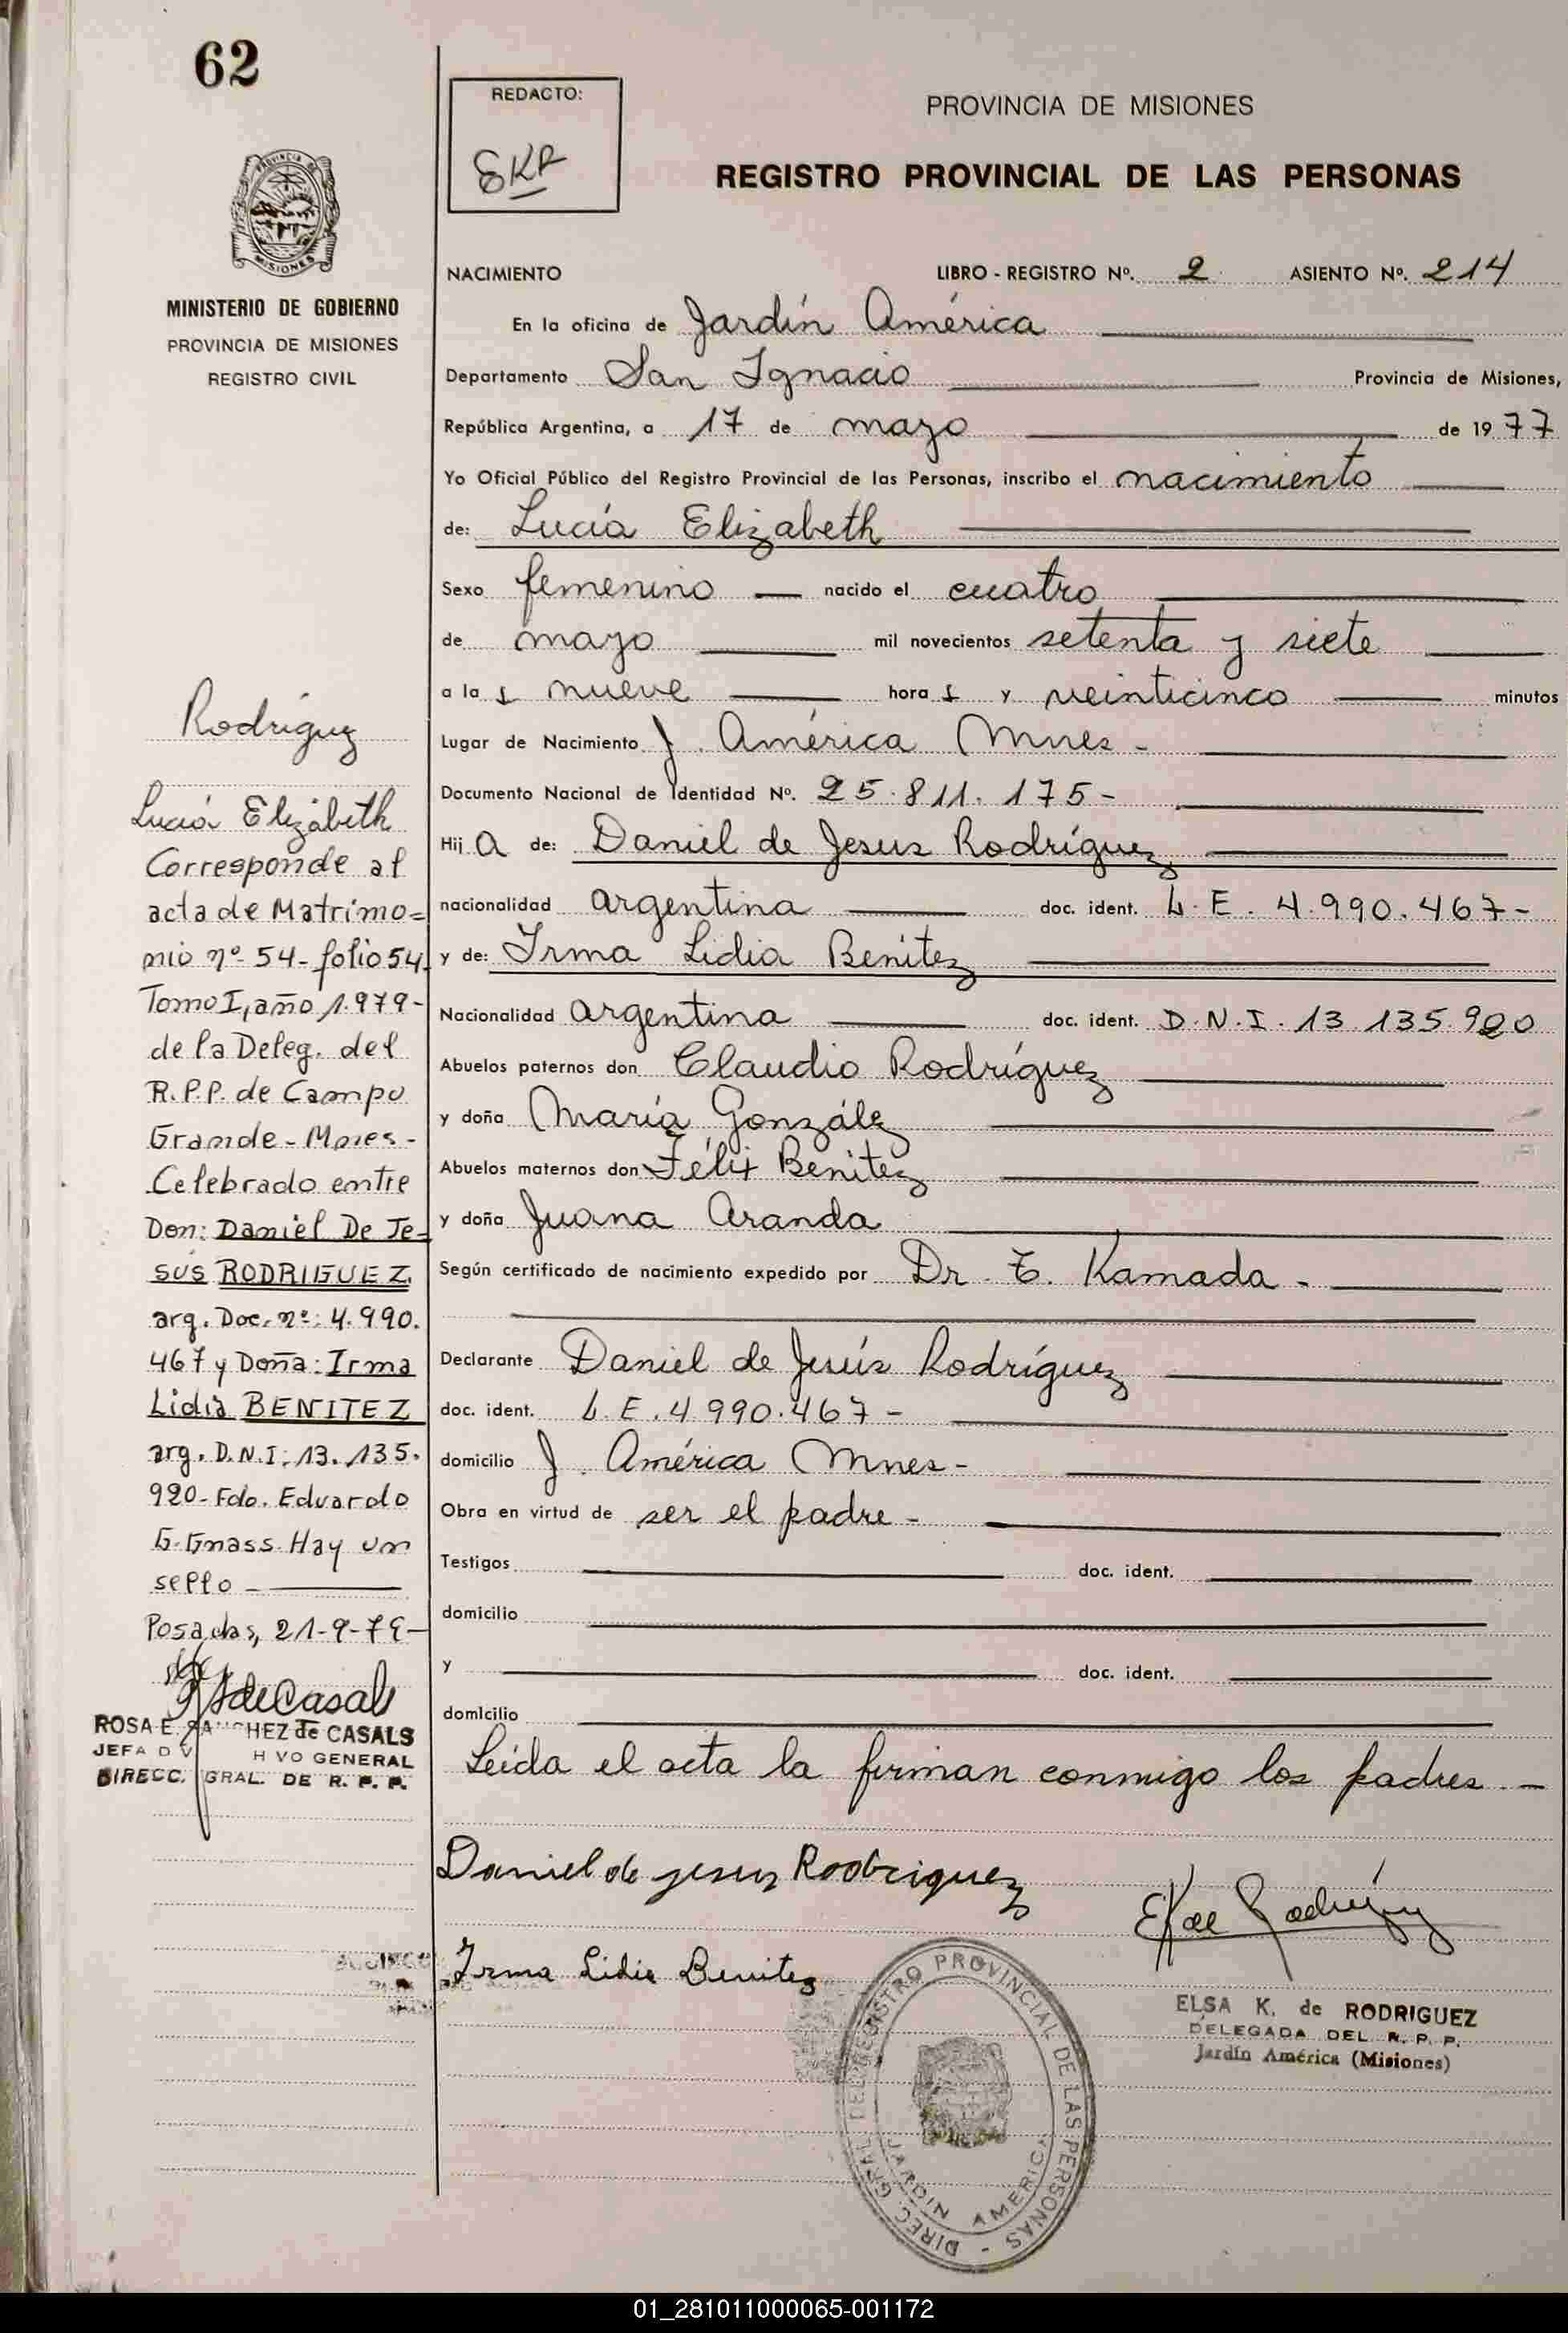 62
REDACTO:
EKR
PROVINCIA DE MISIONES
REGISTRO PROVINCIAL DE LAS PERSONAS
MISIONES
MINISTERIO DE GOBIERNO
PROVINCIA DE MISIONES
REGISTRO CIVIL
NACIMIENTO LIBRO - REGISTRO Nº. 2 ASIENTO Nº. 214
En la oficina de Jardín América
Departamento San Ignacio Provincia de Misiones,
República Argentina, a 17 de mayo de 1977
Yo Oficial Público del Registro Provincial de las Personas, inscribo el nacimiento
de: Lucía Elizabeth
Sexo femenino — nacido el cuatro
de mayo mil novecientos setenta y siete
a las nueve horas y veinticinco minutos
Lugar de Nacimiento J. América Mnes -
Documento Nacional de Identidad Nº. 25.811.175-
Hij A de: Daniel de Jesus Rodríguez
nacionalidad argentina doc. ident. L.E. 4.990.467-
y de: Irma Lidia Benitez
Nacionalidad argentina doc. ident. D.N.I. 13.135.920
Abuelos paternos don Claudio Rodríguez
y doña María González
Abuelos maternos don Félix Benitez
y doña Juana Aranda
Según certificado de nacimiento expedido por Dr. T. Kamada -
Declarante Daniel de Jesús Rodríguez
doc. ident. L.E. 4.990.467-
domicilio J. América Mnes-
Obra en virtud de ser el padre -
Testigos doc. ident.
domicilio
y doc. ident.
domicilio
Leída el acta la firman conmigo los padres.-
Daniel de jesus Rodriguez
Irma Lidia Benitez
ELSA K. de RODRIGUEZ
DELEGADA DEL R. P. P.
Jardín América (Misiones)
DIREC. GRAL. DEL REGISTRO PROVINCIAL DE LAS PERSONAS -
JARDIN AMERICA
Rodríguez
Lucía Elizabeth
Corresponde al
acta de Matrimo=
nio nº-54-folio 54
Tomo I, año 1.979-
de la Deleg. del
R.P.P. de Campo
Grande - Mnes -
Celebrado entre
Don: Daniel De Je-
sus RODRIGUEZ
arg. Doc. nº: 4.990.
467 y Doña: Irma
Lidia BENITEZ
arg. D.N.I: 13.135.
920- Fdo. Eduardo
G. Gnass. Hay un
sello -
Posadas, 21-9-79-
ROSA E. SANCHEZ de CASALS
JEFA DIV HIVO GENERAL
DIRECC. GRAL. DE R. P. P.
01_281011000065-001172